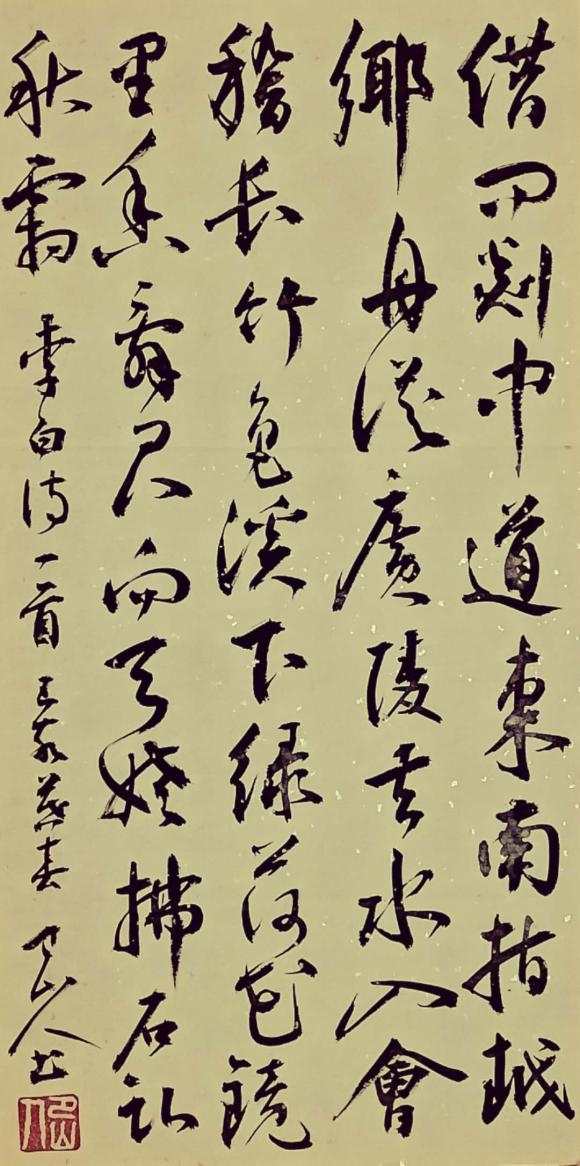 借問剡中道東南指越
鄉舟從廣陵去水入會
稽長竹色溪下緑荷花鏡
里香辭君向天姥拂石卧
秋霜 李白诗一首 己亥暮春 山人书